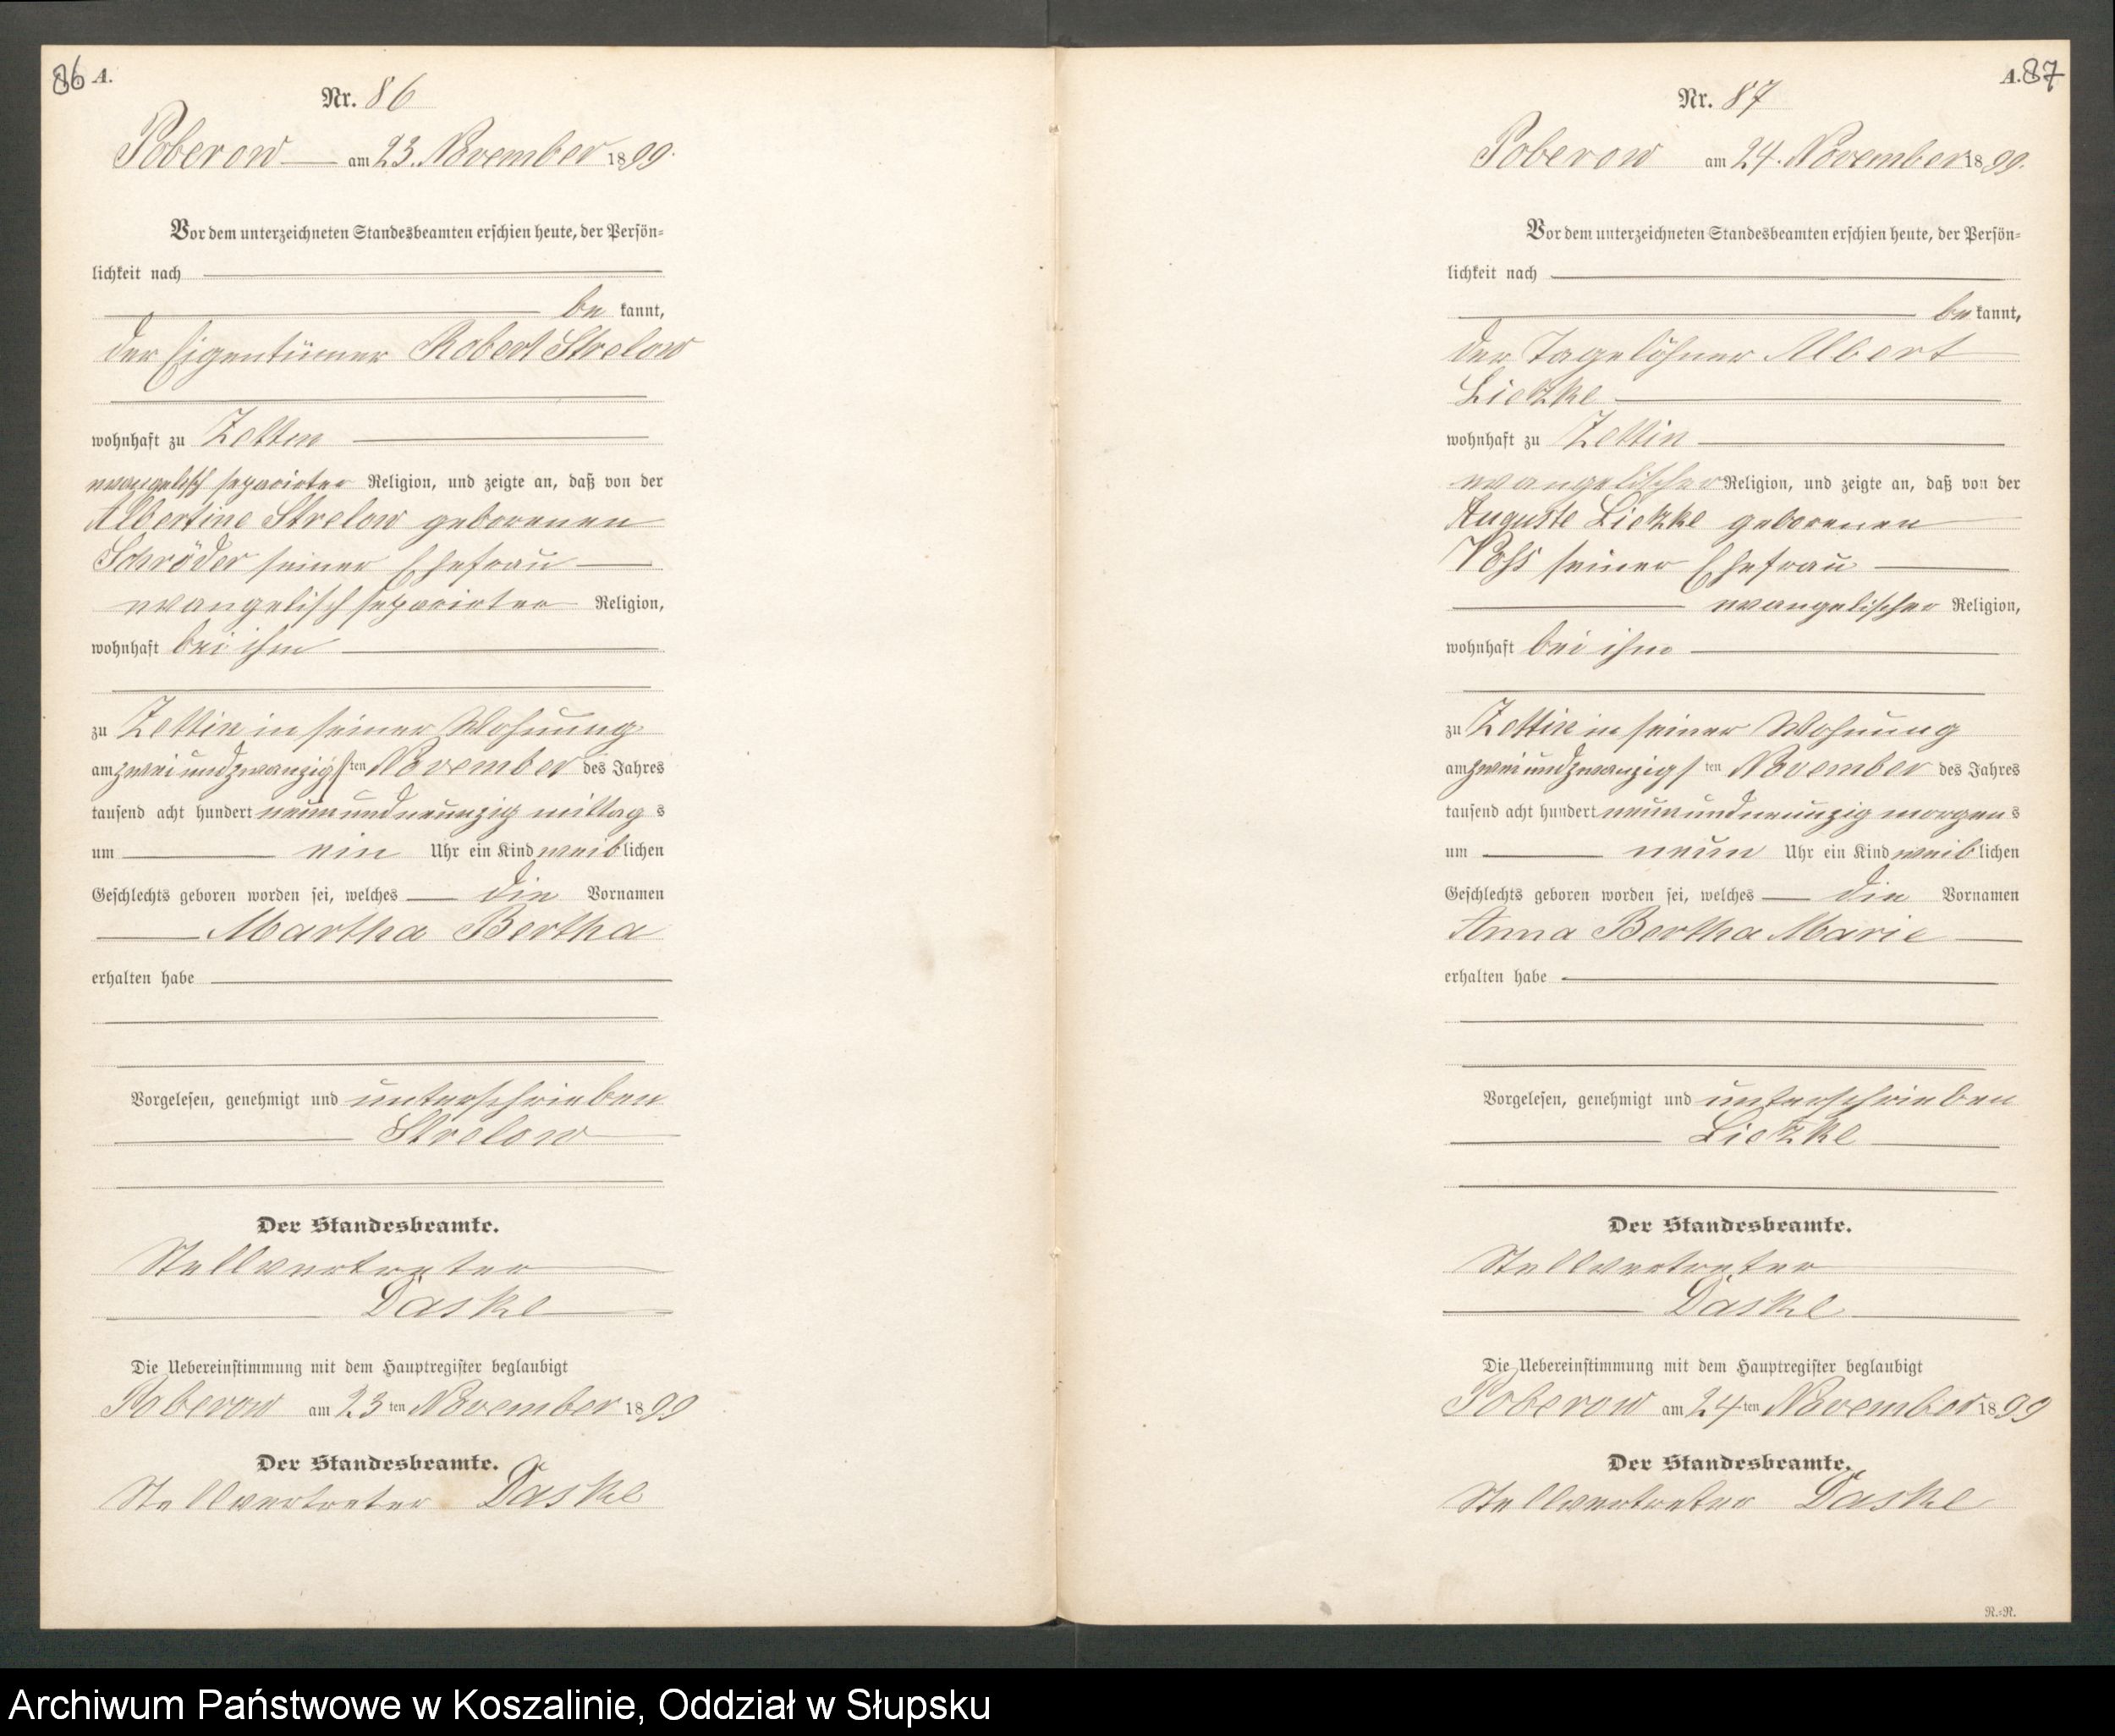 86 A.
Nr. 86
Poberow am 23. November 1899.
Vor dem unterzeichneten Standesbeamten erschien heute, der Persön-
lichkeit nach
be kannt,
der Eigentümer Robert Strelow
wohnhaft zu Zettin
evangelisch separirter Religion, und zeigte an, daß von der
Albertine Strelow geborenen
Schröder seiner Ehefrau
evangelisch separirter Religion,
wohnhaft bei ihm
zu Zettin in seiner Wohnung
am zwei und zwanzigsten November des Jahres
tausend acht hundert neun und neunzig mittags
um ein Uhr ein Kind weiblichen
Geschlechts geboren worden sei, welches die Vornamen
Martha Bertha
erhalten habe
Vorgelesen, genehmigt und unterschrieben
Strelow
Der Standesbeamte.
Stellvertreter
Daske
Die Uebereinstimmung mit dem Hauptregister beglaubigt
Poberow am 23 ten November 1899
Der Standesbeamte.
Stellvertreter Daske
A. 87
Nr. 87
Poberow am 24. November 1899.
Vor dem unterzeichneten Standesbeamten erschien heute, der Persön-
lichkeit nach
be kannt,
der Tagelöhner Albert
Lietzke
wohnhaft zu Zettin
evangelischer Religion, und zeigte an, daß von der
Auguste Lietzke geborenen
Voß seiner Ehefrau
evangelischer Religion,
wohnhaft bei ihm
zu Zettin in seiner Wohnung
am zwei und zwanzigsten November des Jahres
tausend acht hundert neun und neunzig morgens
um neun Uhr ein Kind weiblichen
Geschlechts geboren worden sei, welches die Vornamen
Anna Bertha Marie
erhalten habe
Vorgelesen, genehmigt und unterschrieben
Lietzke
Der Standesbeamte.
Stellvertreter
Daske
Die Uebereinstimmung mit dem Hauptregister beglaubigt
Poberow am 24 ten November 1899
Der Standesbeamte.
Stellvertreter Daske
R.-R.
Archiwum Państwowe w Koszalinie, Oddział w Słupsku